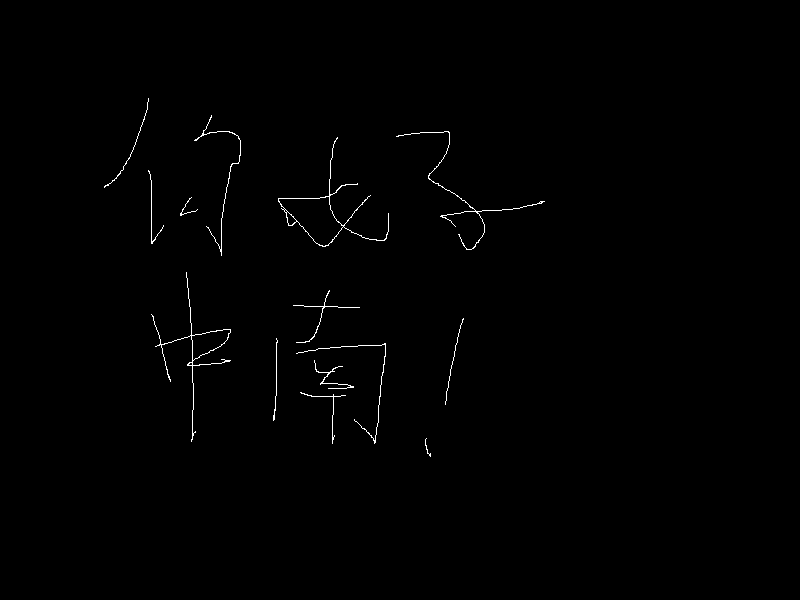 你好
中南！